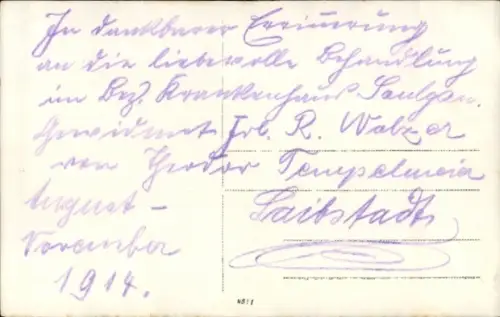 In dankbarer Erinnerung
an die liebevolle Behandlung
im Bez. Krankenhaus Saulgau.
Gewidmet Frl. R. Walzer
von Theodor Tempelmeier
Laibstadt
August -
November
1914.